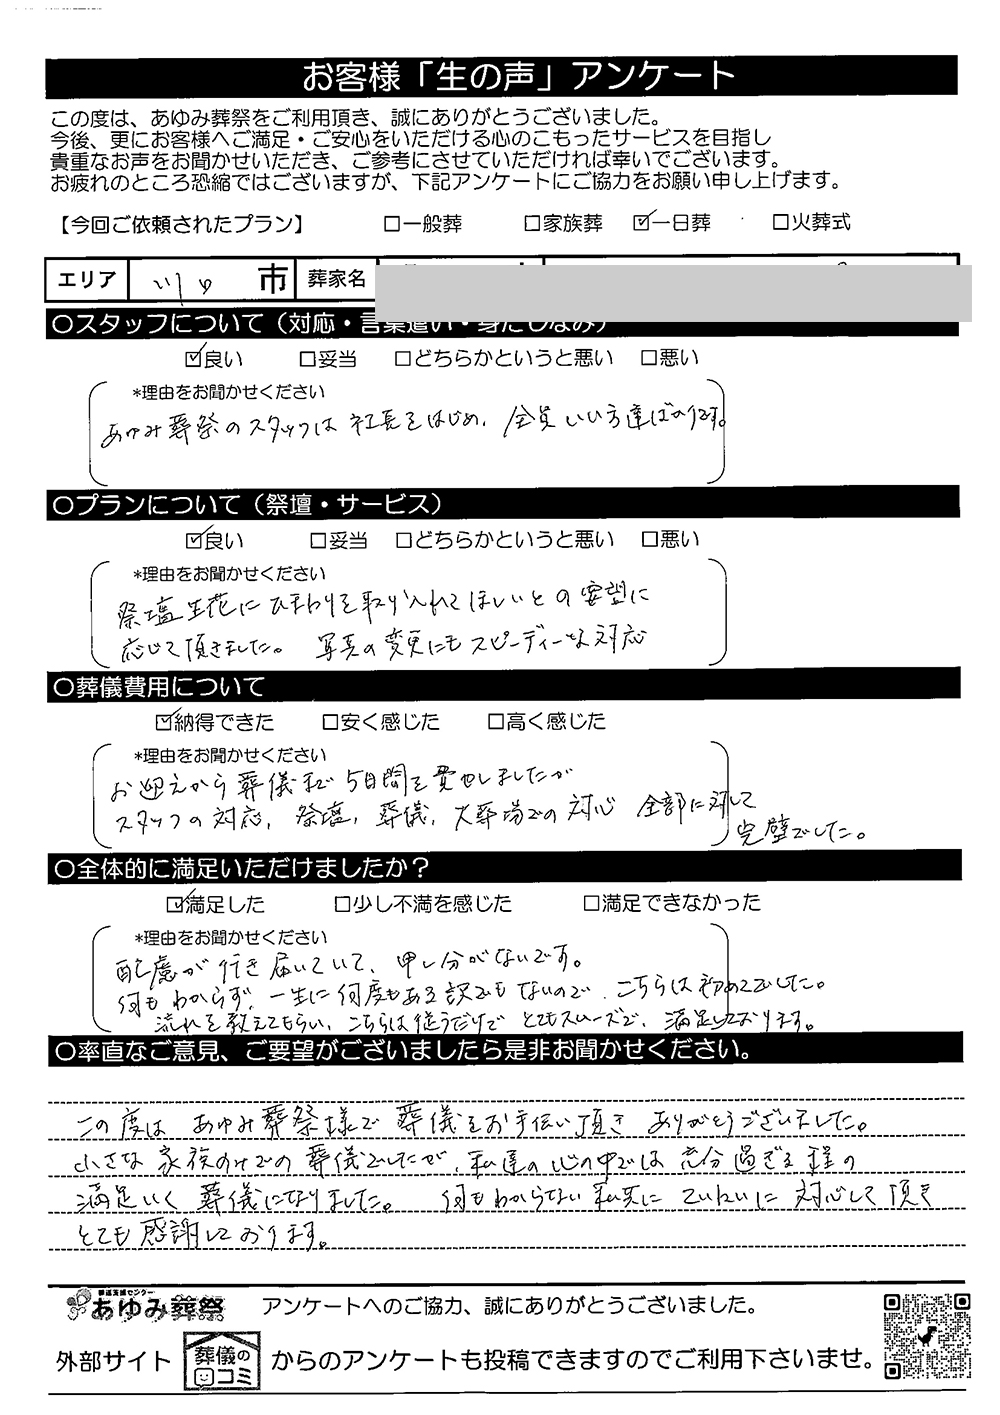 お客様「生の声」アンケート
この度は、あゆみ葬祭をご利用頂き、誠にありがとうございました。
今後、更にお客様へご満足・ご安心をいただける心のこもったサービスを目指し
貴重なお声をお聞かせいただき、ご参考にさせていただければ幸いでございます。
お疲れのところ恐縮ではございますが、下記アンケートにご協力をお願い申し上げます。
【今回ご依頼されたプラン】 □一般葬 □家族葬 ☑一日葬 □火葬式
エリア 川口 市 葬家名
○スタッフについて（対応・言葉遣い・身だしなみ）
☑良い □妥当 □どちらかというと悪い □悪い
*理由をお聞かせください
あゆみ葬祭のスタッフは社長をはじめ、全員いい方達ばかりです。
○プランについて（祭壇・サービス）
☑良い □妥当 □どちらかというと悪い □悪い
*理由をお聞かせください
祭壇生花にひまわりを取り入れてほしいとの要望に
応じて頂きました。 写真の変更にもスピーディーな対応
○葬儀費用について
☑納得できた □安く感じた □高く感じた
*理由をお聞かせください
お迎えから葬儀まで5日間を費しましたが
スタッフの対応、祭壇、葬儀、火葬場での対応 全部に対して
完璧でした。
○全体的に満足いただけましたか？
☑満足した □少し不満を感じた □満足できなかった
*理由をお聞かせください
配慮が行き届いていて、申し分がないです。
何もわからず、一生に何度もある訳でもないので、こちらは初めてでした。
流れを教えてもらい、こちらは従うだけで とてもスムーズで、満足しております。
○率直なご意見、ご要望がございましたら是非お聞かせください。
この度は あゆみ葬祭様で 葬儀をお手伝い頂き ありがとうございました。
小さな 家族のみでの 葬儀でしたが、私達の心の中では 充分過ぎる程の
満足いく 葬儀になりました。 何もわからない 私共に ていねいに 対応して頂き
とても感謝しております。
葬送支援センター
あゆみ葬祭 アンケートへのご協力、誠にありがとうございました。
外部サイト 葬儀の口コミ からのアンケートも投稿できますのでご利用下さいませ。